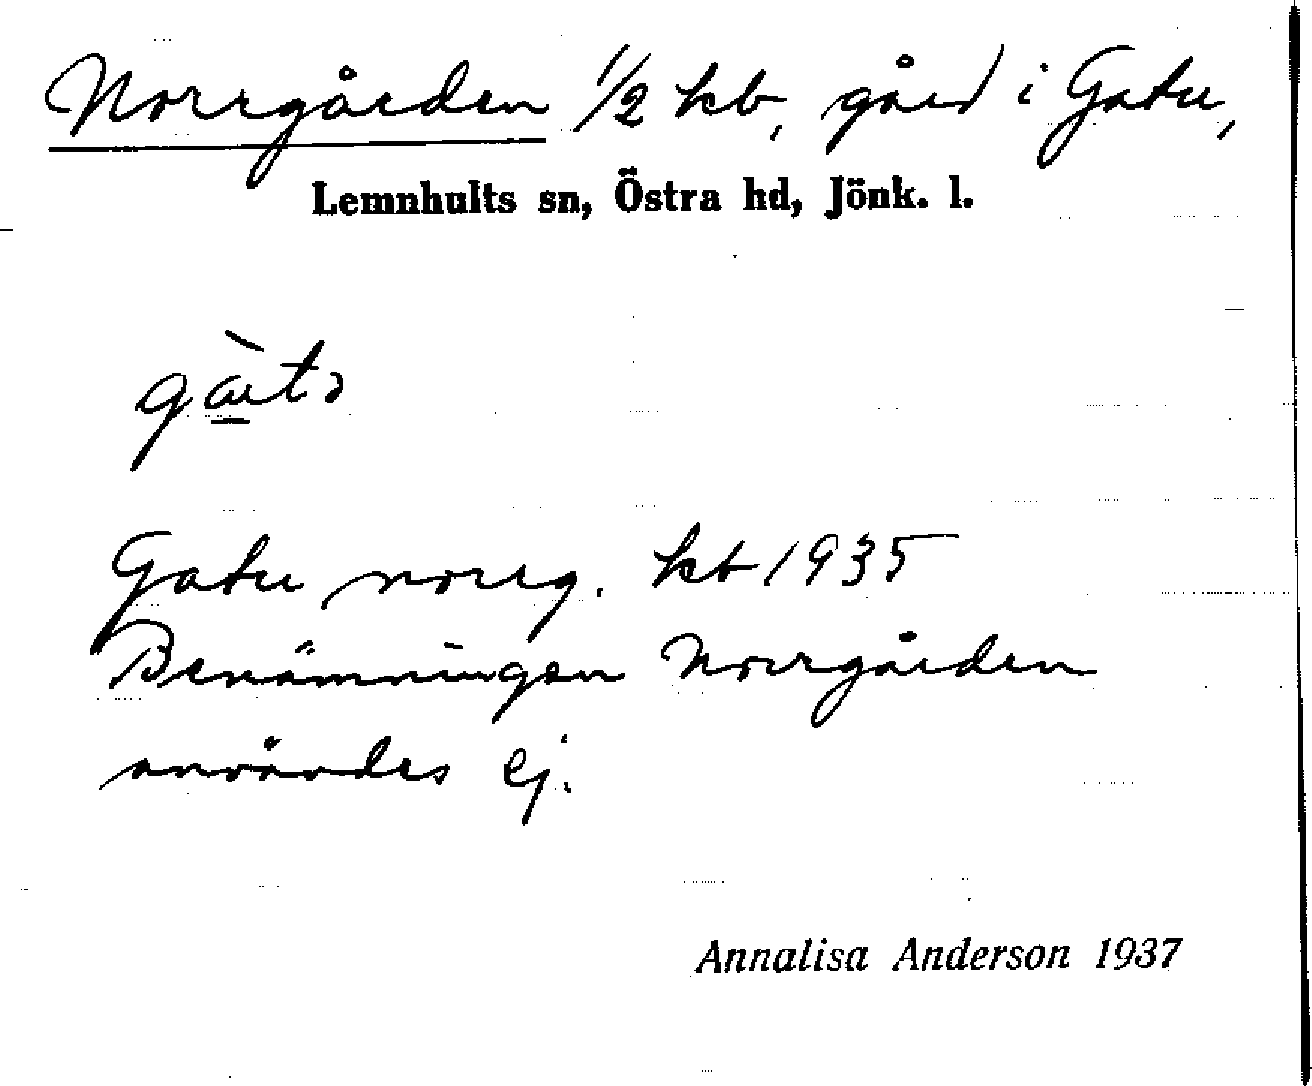 Norrgården 1/2 kb, gård i Gatu,
Lemnhults sn, Östra hd, Jönk. l.
Gatu norrg. kb 1935
Benämningen Norrgården
användes ej.
Annalisa Anderson 1937